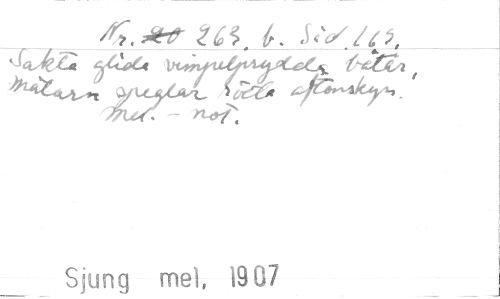 Nr. 20 263. b. Sid. 165.
Sakta glida vimpelprydda båtar,
Mälarn speglar röda aftonskyn.
Mel. - not.
Sjung mel, 1907